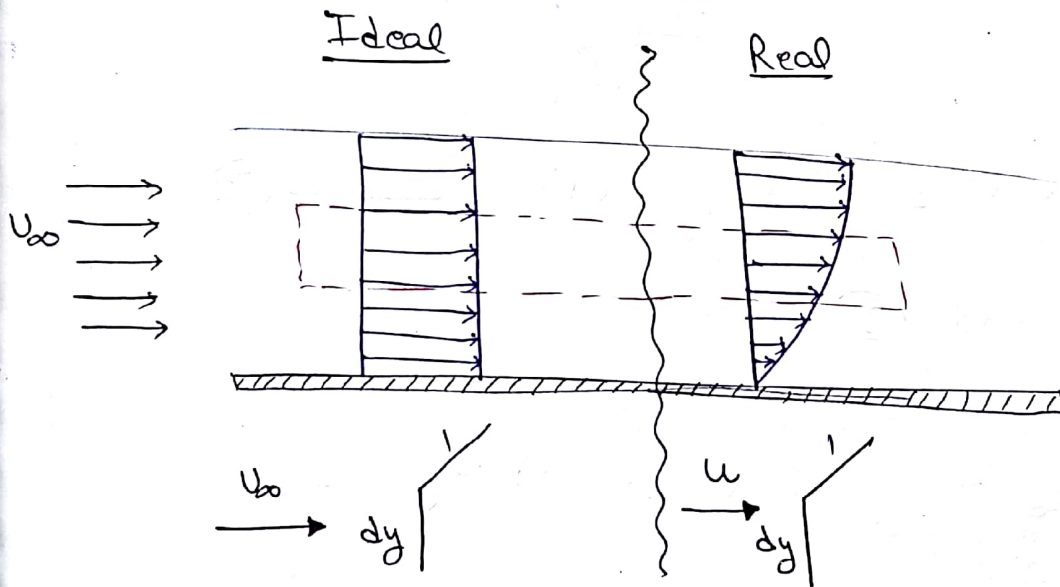 Ideal
Real
U∞
U∞
dy
1
u
dy
1